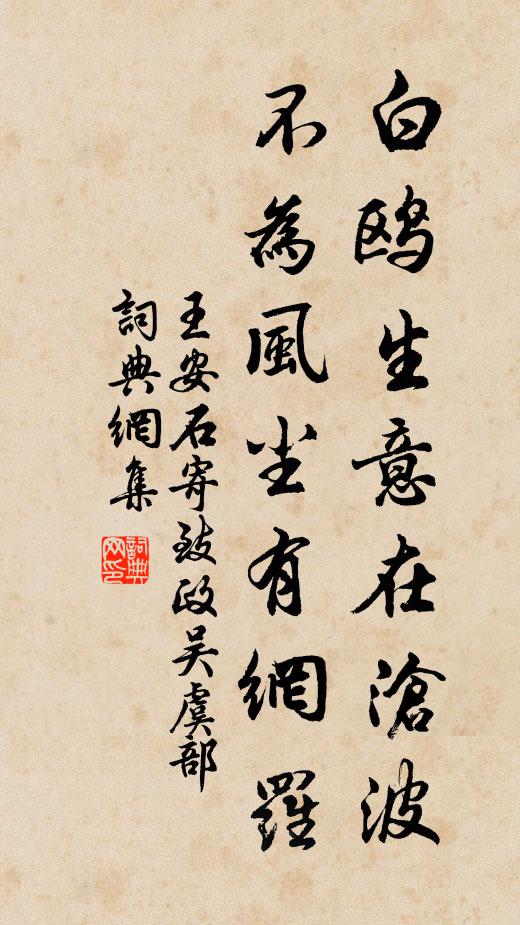 白鷗生意在滄波
不為風尘有網羅
王安石寄致政吴虞部
詞典網集
詞典网印